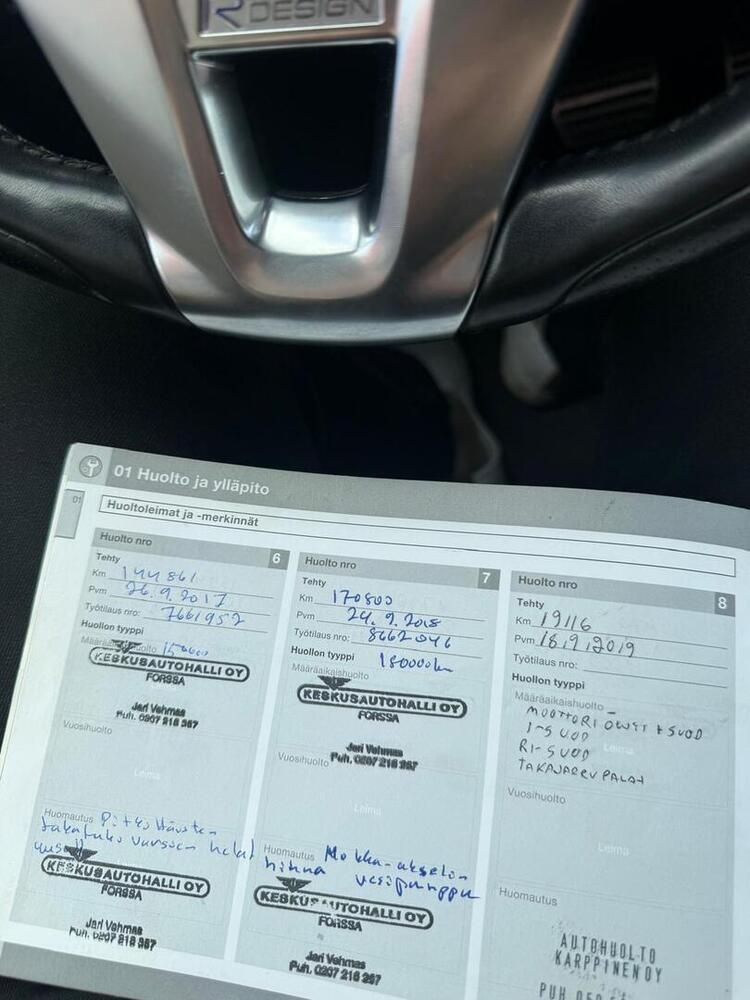 R DESIGN
01 Huolto ja ylläpito
01
Huoltoleimat ja -merkinnät
Huolto nro 6
Tehty
Km 144861
Pvm 26.9.2017
Työtilaus nro: 7661952
Huollon tyyppi
Määräaikaishuolto
KESKUSAUTOHALLI OY
FORSSA
Jari Vehmas
Puh. 0207 218 367
Vuosihuolto
Leima
Huomautus Pitkittäisten
takatuko varsien helat
KESKUSAUTOHALLI OY
FORSSA
Jari Vehmas
Puh. 0207 218 367
Huolto nro 7
Tehty
Km 170800
Pvm 24.9.2018
Työtilaus nro: 8662046
Huollon tyyppi 180000km
Määräaikaishuolto
KESKUSAUTOHALLI OY
FORSSA
Jari Vehmas
Puh. 0207 218 367
Vuosihuolto
Leima
Huomautus
hihna vesipumppu
KESKUSAUTOHALLI OY
FORSSA
Jari Vehmas
Puh. 0207 218 367
Huolto nro 8
Tehty
Km 19116
Pvm 18.9.2019
Työtilaus nro:
Huollon tyyppi
Määräaikaishuolto
MOOTTORI + SUOD
I-SUOD
RI-SUOD
TAKAJARRUPALAT
Leima
Vuosihuolto
Leima
Huomautus
AUTOHUOLTO
KARPPINEN OY
PUH